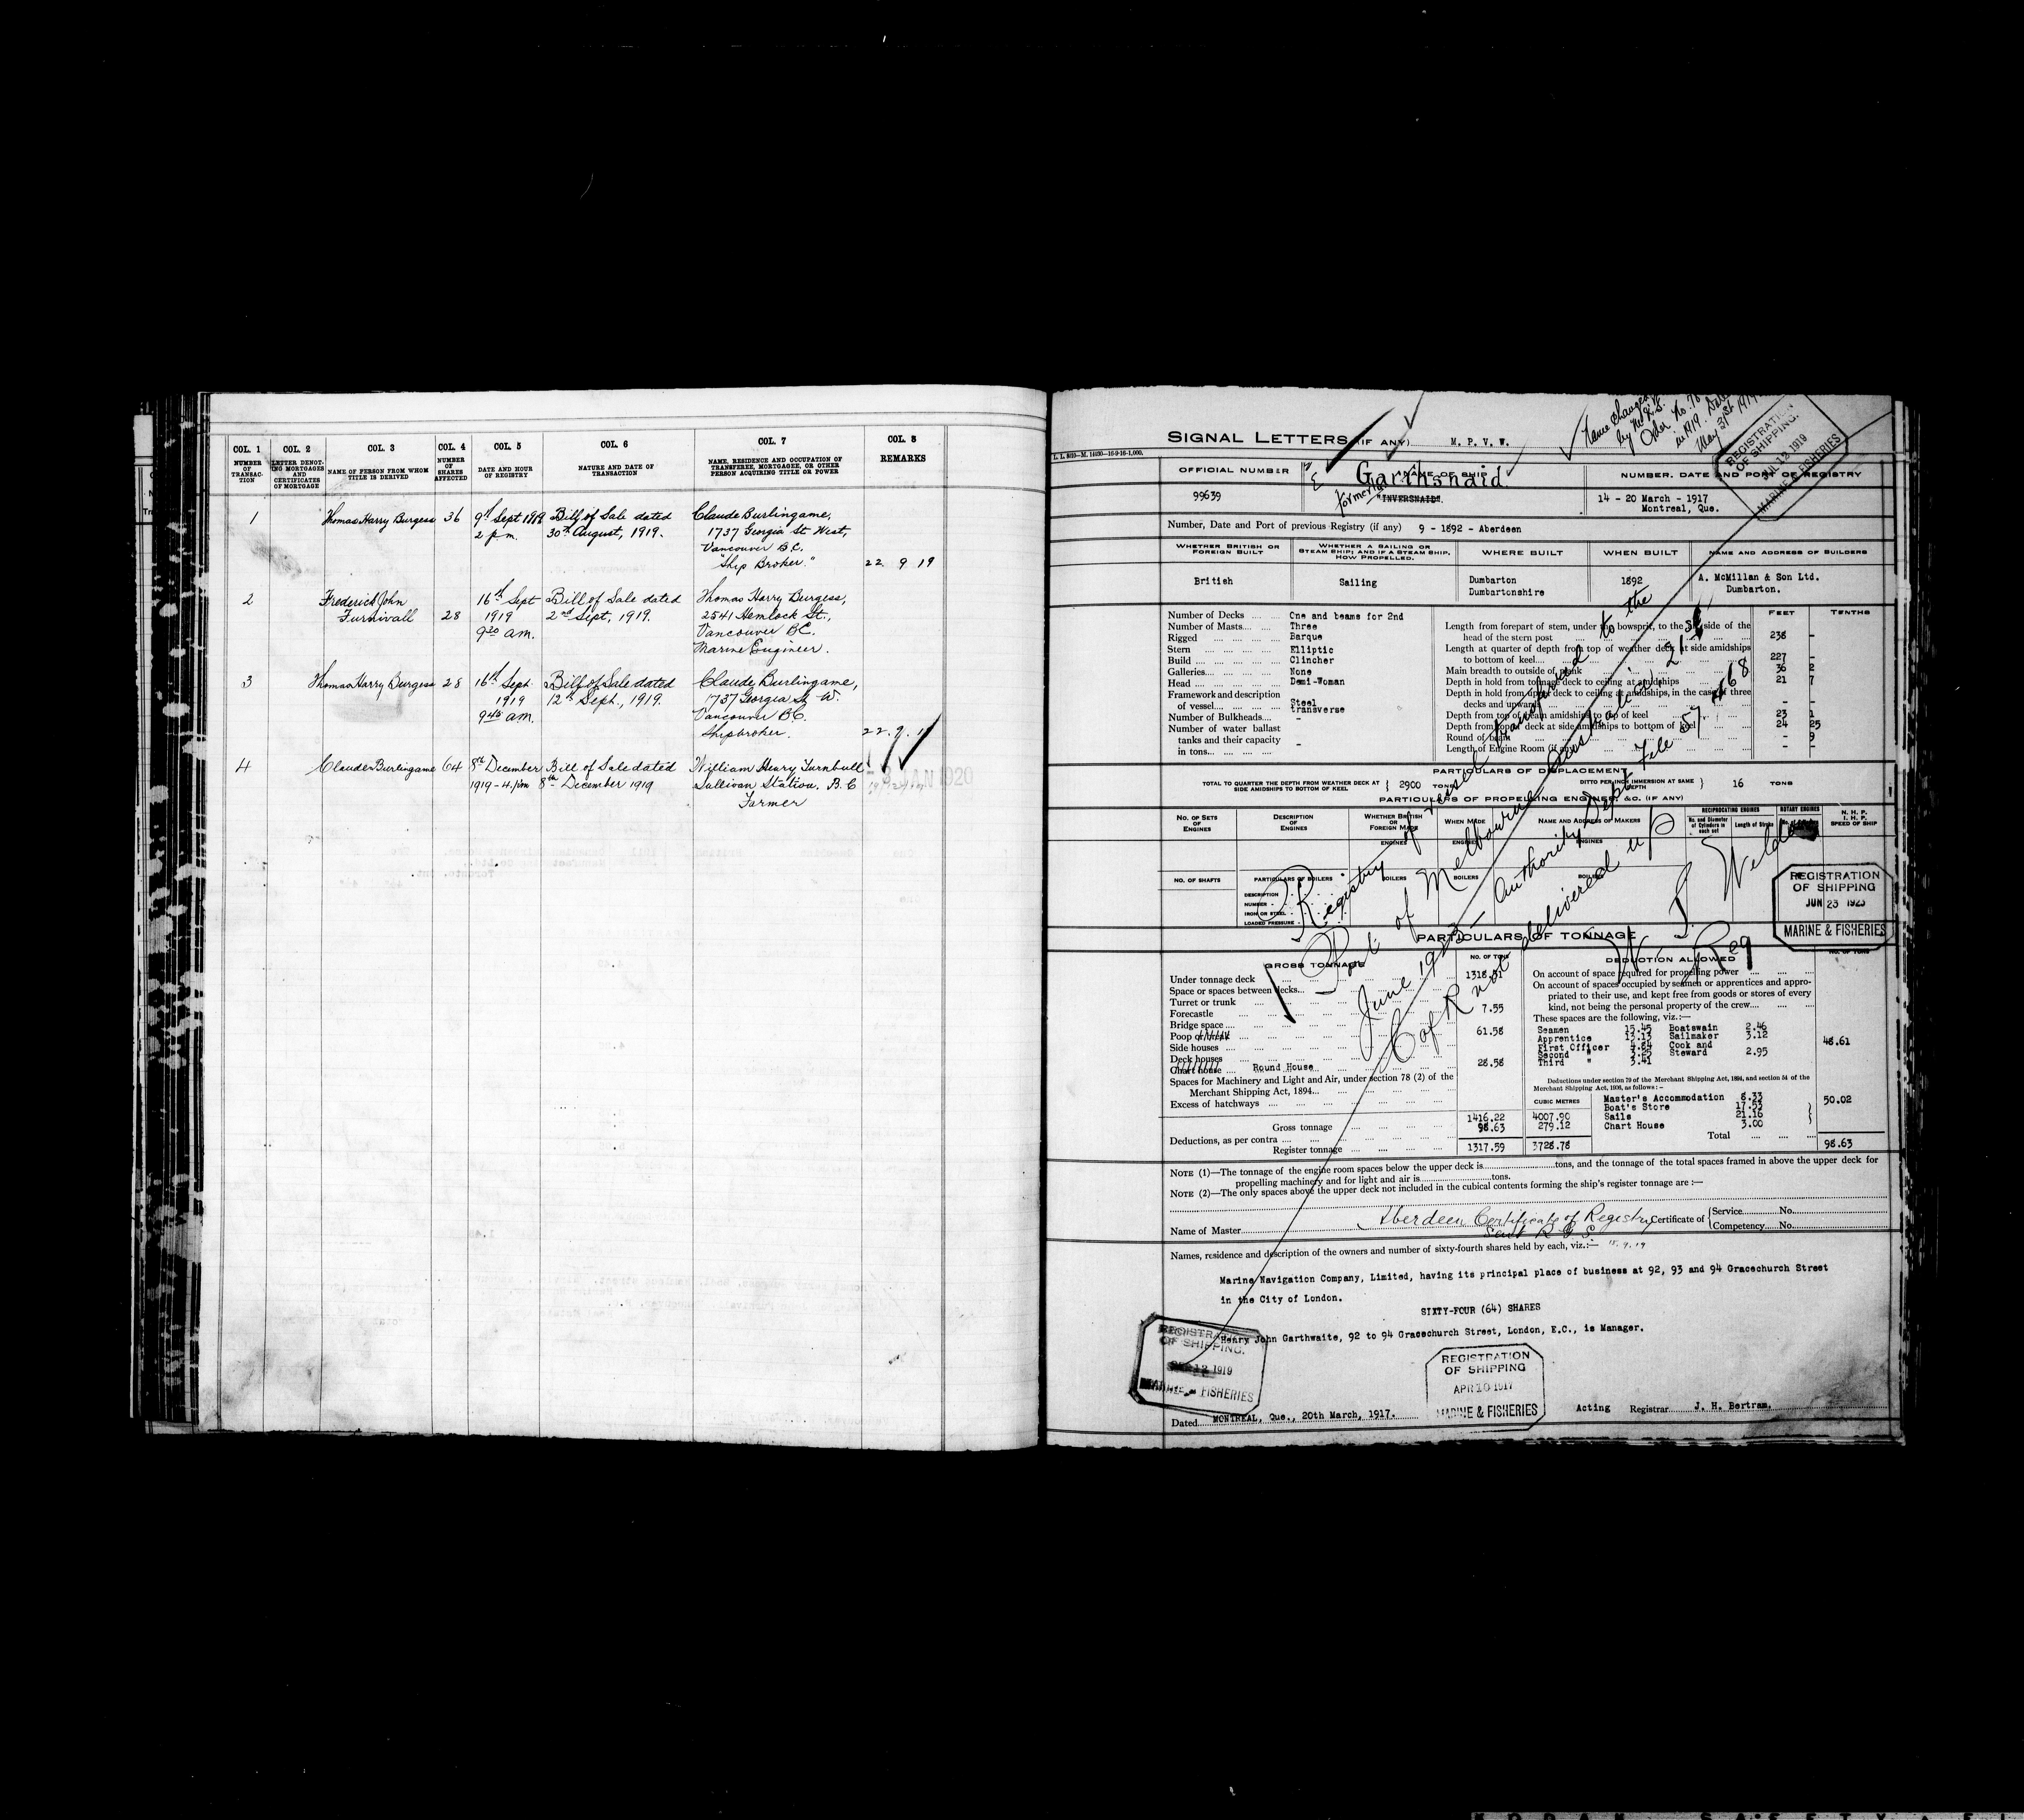 COL. 1
NUMBER OF TRANSAC-TION
COL. 2
LETTER DENOT-ING MORTGAGES AND CERTIFICATES OF MORTGAGE
COL. 3
NAME OF PERSON FROM WHOM TITLE IS DERIVED
COL. 4
NUMBER OF SHARES AFFECTED
COL. 5
DATE AND HOUR OF REGISTRY
COL. 6
NATURE AND DATE OF TRANSACTION
COL. 7
NAME, RESIDENCE AND OCCUPATION OF TRANSFEREE, MORTGAGEE, OR OTHER PERSON ACQUIRING TITLE OR POWER
COL. 8
REMARKS
1 Thomas Harry Burgess 36 9th Sept 1919 Bill of Sale dated Claude Burlingame,
2 p.m. 30th August, 1919. 1737 Georgia St West,
Vancouver B.C.
"Ship Broker." 22 9 19
2 Frederick John 16th Sept Bill of Sale dated Thomas Harry Burgess,
Furnivall 28 1919 2nd Sept, 1919. 2541 Hemlock St.,
9 30 am. Vancouver B.C.
Marine Engineer.
3 Thomas Harry Burgess 28 16th Sept Bill of Sale dated Claude Burlingame,
1919 12th Sept., 1919. 1737 Georgia St W.
9 45 am. Vancouver B.C.
Shipbroker. 22.9.19
4 Claude Burlingame 64 8th December Bill of Sale dated William Henry Turnbull
1919 - 4. pm 8th December 1919 Sullivan Station. B.C
Farmer
JAN 1920
SIGNAL LETTERS (IF ANY) M. P. V. W.
Name changed
Order No. 78
in 1919. Dated
May 31st 1919
REGISTRATION
OF SHIPPING.
JUL 12 1919
MARINE & FISHERIES
OFFICIAL NUMBER
NAME OF SHIP
NUMBER, DATE AND PORT OF REGISTRY
Garthsnaid
99639
formerly
"INVERSNAID".
14 - 20 March - 1917
Montreal, Que.
Number, Date and Port of previous Registry (if any) 9 - 1892 - Aberdeen
WHETHER BRITISH OR FOREIGN BUILT
WHETHER A SAILING OR STEAM SHIP; AND IF A STEAM SHIP, HOW PROPELLED.
WHERE BUILT
WHEN BUILT
NAME AND ADDRESS OF BUILDERS
British
Sailing
Dumbarton
Dumbartonshire
1892
A. McMillan & Son Ltd.
Dumbarton.
FEET TENTHS
Number of Decks One and beams for 2nd
Number of Masts Three
Rigged Barque
Stern Elliptic
Build Clincher
Galleries None
Head Demi-Woman
Framework and description
of vessel Steel transverse
Number of Bulkheads -
Number of water ballast
tanks and their capacity
in tons -
Length from forepart of stem, under the bowsprit, to the aft side of the
head of the stern post 238 -
Length at quarter of depth from top of weather deck at side amidships
to bottom of keel 227 -
Main breadth to outside of plank 36 2
Depth in hold from tonnage deck to ceiling at amidships 21 7
Depth in hold from upper deck to ceiling at amidships, in the case of three
decks and upwards - -
Depth from top of beam amidships to top of keel 23 1
Depth from top of deck at side amidships to bottom of keel 24 25
Round of beam - 9
Length of Engine Room (if any) - -
PARTICULARS OF DISPLACEMENT
TOTAL TO QUARTER THE DEPTH FROM WEATHER DECK AT SIDE AMIDSHIPS TO BOTTOM OF KEEL 2900 TONS
DITTO PER INCH IMMERSION AT SAME DEPTH 16 TONS
PARTICULARS OF PROPELLING ENGINES, &C. (IF ANY)
NO. OF SETS OF ENGINES
DESCRIPTION OF ENGINES
WHETHER BRITISH OR FOREIGN MADE
WHEN MADE
NAME AND ADDRESS OF MAKERS
RECIPROCATING ENGINES
No. and Diameter of Cylinders in each set
Length of Stroke
ROTARY ENGINES
N. H. P.
I. H. P.
SPEED OF SHIP
ENGINES ENGINES ENGINES
NO. OF SHAFTS
PARTICULARS OF BOILERS
BOILERS BOILERS BOILERS
DESCRIPTION
NUMBER
IRON OR STEEL
LOADED PRESSURE
Registry of vessel transferred to the
Port of Melbourne Australia, 21st
June 1923 - Authority Dept File 57 468
C of R not delivered up
Weldon
Reg
REGISTRATION
OF SHIPPING
JUN 23 1923
MARINE & FISHERIES
PARTICULARS OF TONNAGE
GROSS TONNAGE
NO. OF TONS
DEDUCTION ALLOWED
NO. OF TONS
Under tonnage deck 1318.51
Space or spaces between decks
Turret or trunk
Forecastle 7.55
Bridge space
Poop 61.58
Side houses
Deck houses
Chart house Round House 28.58
Spaces for Machinery and Light and Air, under section 78 (2) of the
Merchant Shipping Act, 1894
Excess of hatchways
Gross tonnage 1416.22 4007.90
Deductions, as per contra 98.63 279.12
Register tonnage 1317.59 3728.78
CUBIC METRES
On account of space required for propelling power
On account of spaces occupied by seamen or apprentices and appro-
priated to their use, and kept free from goods or stores of every
kind, not being the personal property of the crew
These spaces are the following, viz.:—
Seamen 15.45 Boatswain 2.46
Apprentice 13.13 Sailmaker 3.12
First Officer 4.84 Cook and
Second " 3.25 Steward 2.95
Third " 3.41
48.61
Deductions under section 79 of the Merchant Shipping Act, 1894, and section 54 of the
Merchant Shipping Act, 1906, as follows:—
Master's Accommodation 8.33
Boat's Store 17.53
Sails 21.16
Chart House 3.00
50.02
Total 98.63
NOTE (1)—The tonnage of the engine room spaces below the upper deck is tons, and the tonnage of the total spaces framed in above the upper deck for
propelling machinery and for light and air is tons.
NOTE (2)—The only spaces above the upper deck not included in the cubical contents forming the ship's register tonnage are :—
Aberdeen Certificate of Registry
Name of Master Certificate of
Service No.
Competency No.
Names, residence and description of the owners and number of sixty-fourth shares held by each, viz.:—
Marine Navigation Company, Limited, having its principal place of business at 92, 93 and 94 Gracechurch Street
in the City of London.
SIXTY-FOUR (64) SHARES
Henry John Garthwaite, 92 to 94 Gracechurch Street, London, E.C., is Manager.
REGISTRATION
OF SHIPPING.
12 1919
MARINE & FISHERIES
REGISTRATION
OF SHIPPING
APR 10 1917
MARINE & FISHERIES
Dated MONTREAL, Que., 20th March, 1917.
Acting Registrar J. H. Bertram.